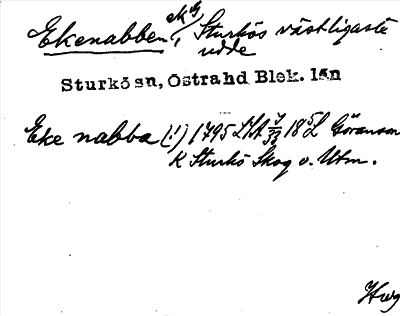 Ekenabben, Sturkös västligaste
udde
Sturkö sn, Östrahd Blek. län
Eke nabba (!) 1795 Göransson
K Sturkö Skog o. Utm.